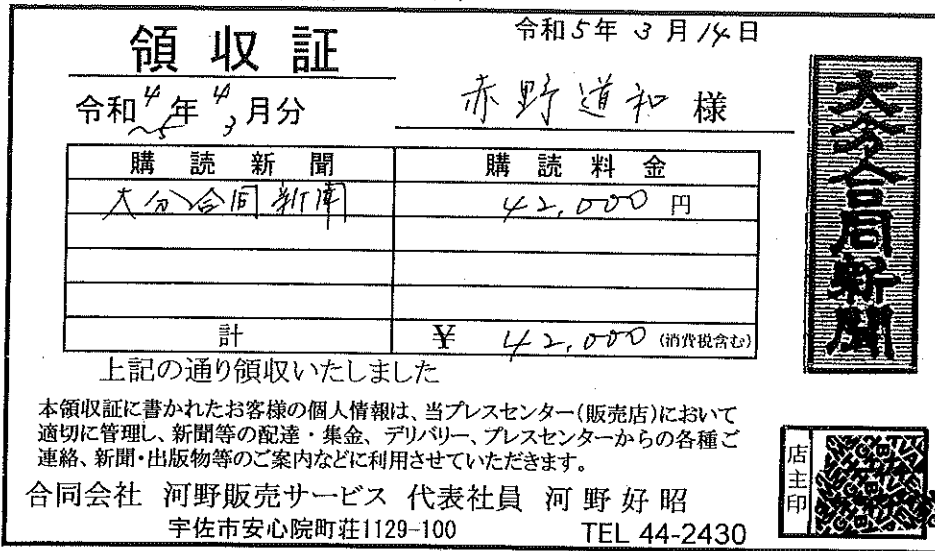 領収証
令和5年3月14日
令和4年4月分
~5 3
赤野道和 様
購読新聞 購読料金
大分合同新聞 42,000円
計 ¥ 42,000 (消費税含む)
上記の通り領収いたしました
大分合同新聞
本領収証に書かれたお客様の個人情報は、当プレスセンター(販売店)において
適切に管理し、新聞等の配達・集金、デリバリー、プレスセンターからの各種ご
連絡、新聞・出版物等のご案内などに利用させていただきます。
店主印
合同会社 河野販売サービス 代表社員 河野好昭
宇佐市安心院町荘1129-100 TEL 44-2430